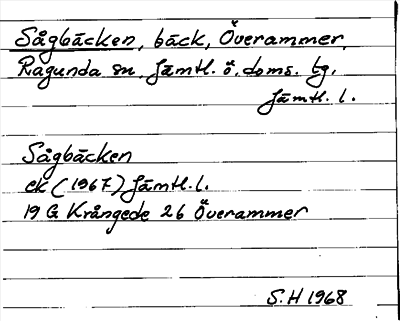 Sågbäcken, bäck, Överammer,
Ragunda sn. Jämtl. ö. doms. tg,
Jämtl. l.
Sågbäcken
ek (1967) Jämtl. l.
19 G Krångede 26 Överammer
S.H 1968